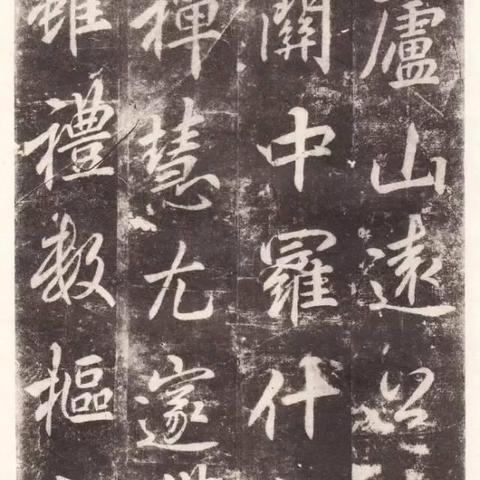 廬山遠公
關中羅什
禪慧尤邃
雖禮數樞